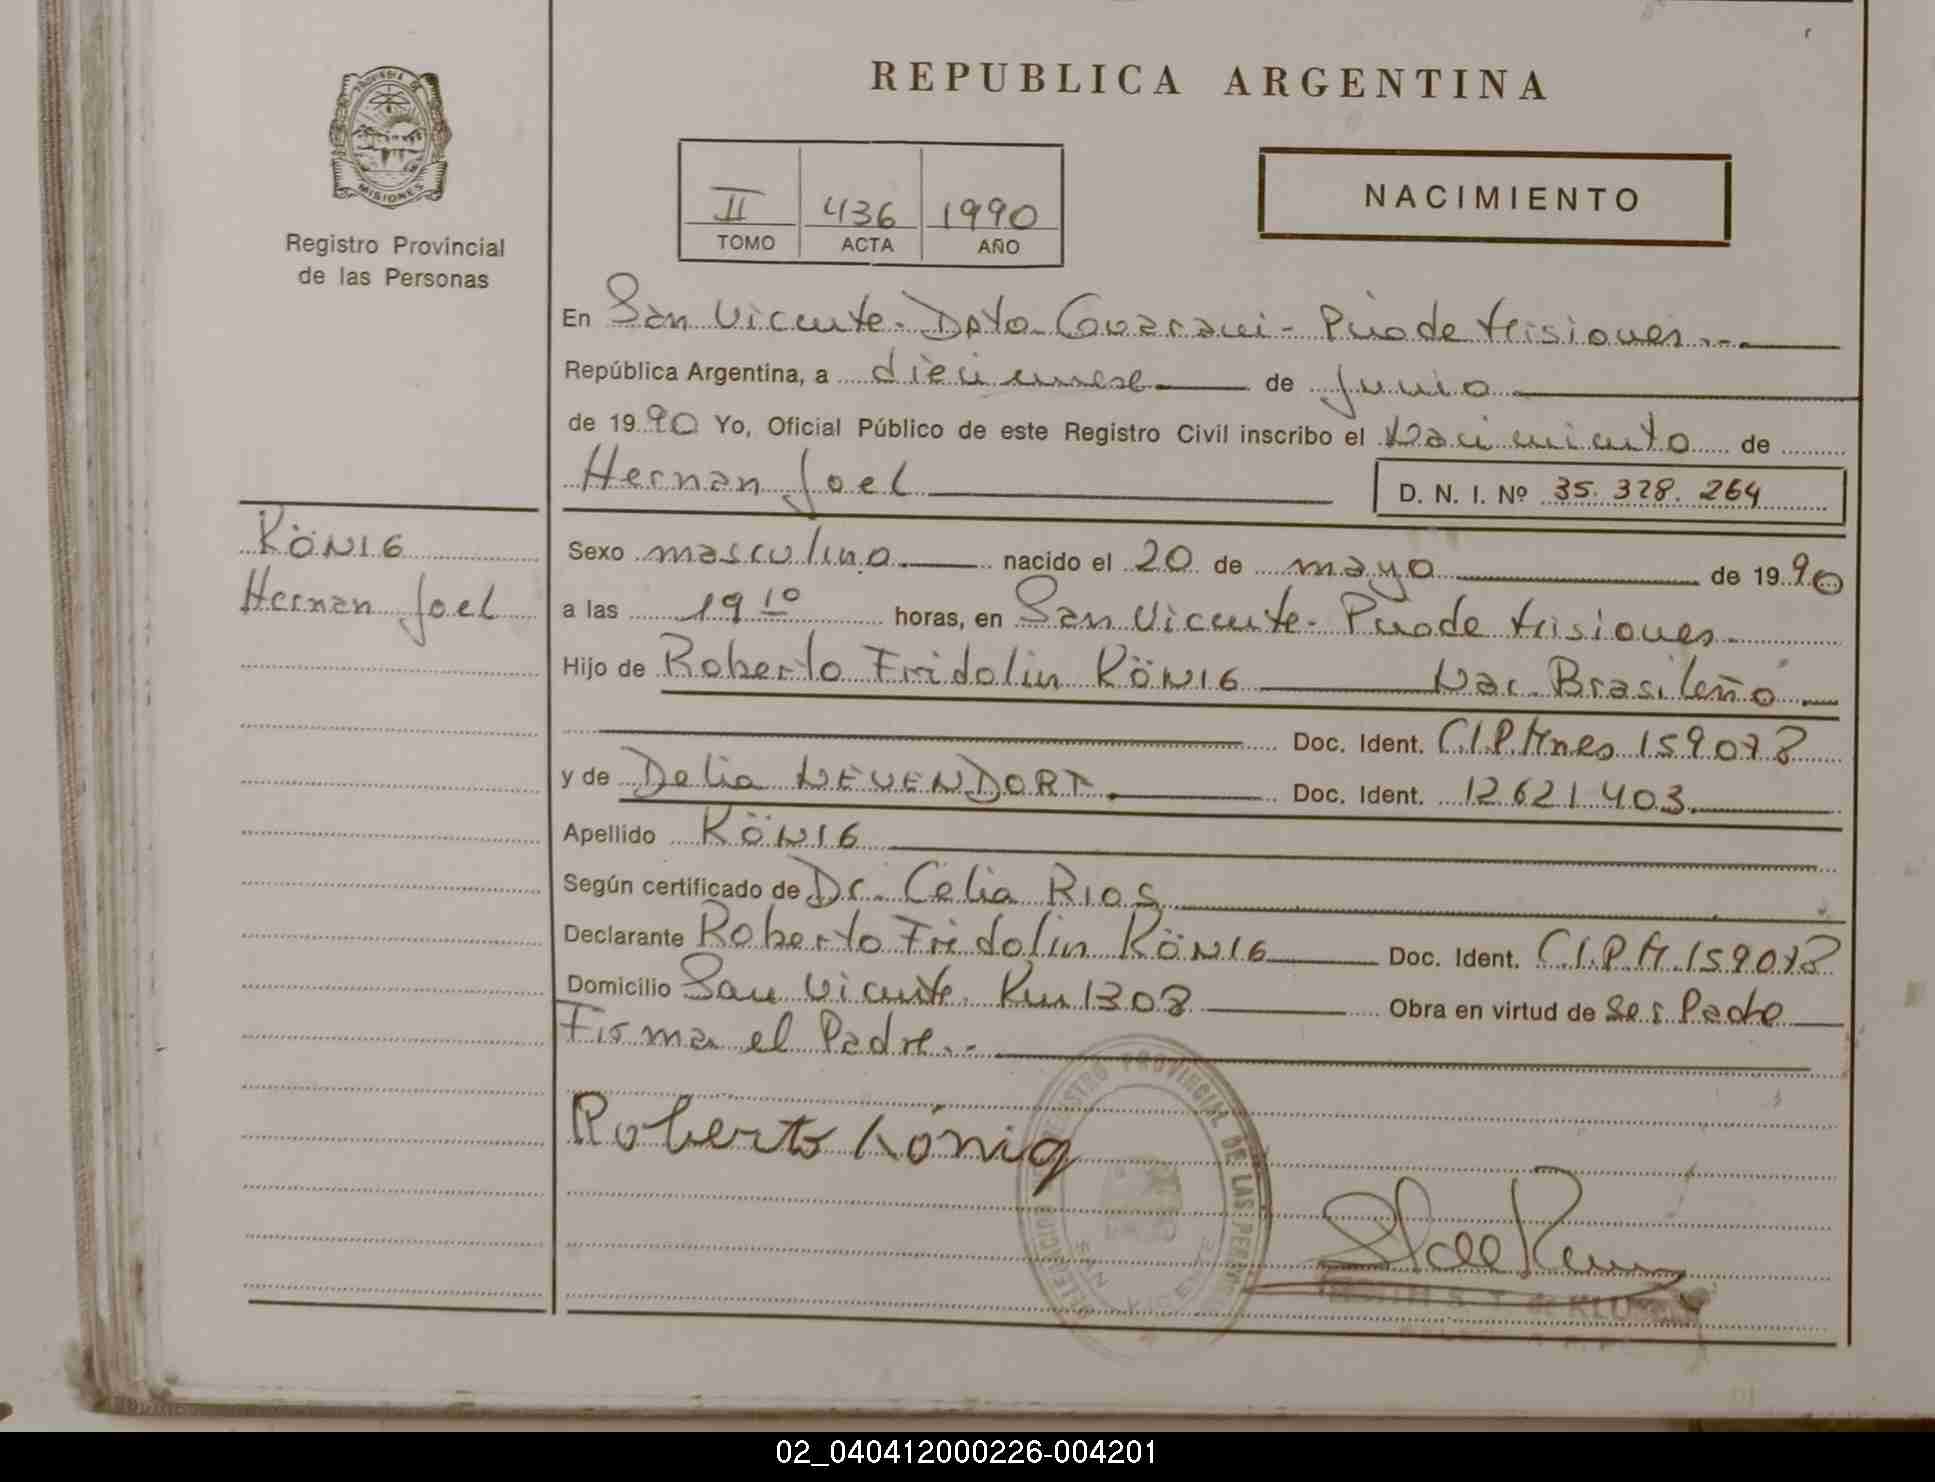 REPUBLICA ARGENTINA
PROVINCIA DE
MISIONES
Registro Provincial
de las Personas
II 436 1990
TOMO ACTA AÑO
NACIMIENTO
En San Vicente - Dpto Guarani - Pcia de Misiones
República Argentina, a diecinueve de junio
de 1990 Yo, Oficial Público de este Registro Civil inscribo el Nacimiento de
Hernan Joel
D. N. I. Nº 35.328.264
KÖNIG
Hernan Joel
Sexo masculino nacido el 20 de mayo de 1990
a las 19 10 horas, en San Vicente - Pcia de Misiones
Hijo de Roberto Fridolin KÖNIG Nac. Brasileño
Doc. Ident. C.I.P. Mnes 159078
y de Delia NEUENDORF Doc. Ident. 12.621.403
Apellido KÖNIG
Según certificado de Dr. Celia RIOS
Declarante Roberto Fridolin KÖNIG Doc. Ident. C.I.P.M. 159078
Domicilio San Vicente Km 1308 Obra en virtud de Ser Padre
Firma el Padre.-
Roberto König
REGISTRO PROVINCIAL DE LAS PERS
DELEGACION
SAN VICENTE
S. T. de
02_040412000226-004201